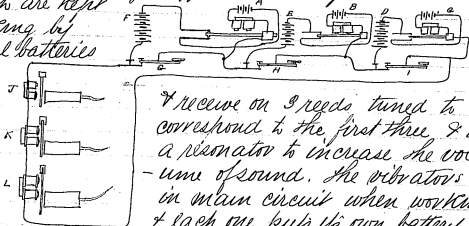 are kept
by
batteries
F A E B D C
G H I
J
K
L
& receive on 3 reeds tuned to
correspond to the first three &
a resonator to increase the vol
-ume of sound. The vibrators
in main circuit when
& each one puts its own battery